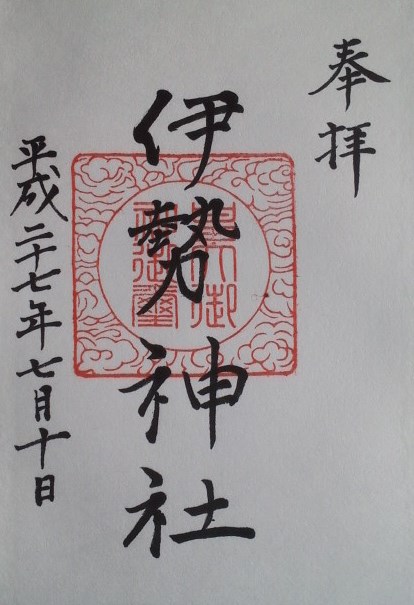 奉拝
伊勢神社
平成二十七年七月十日